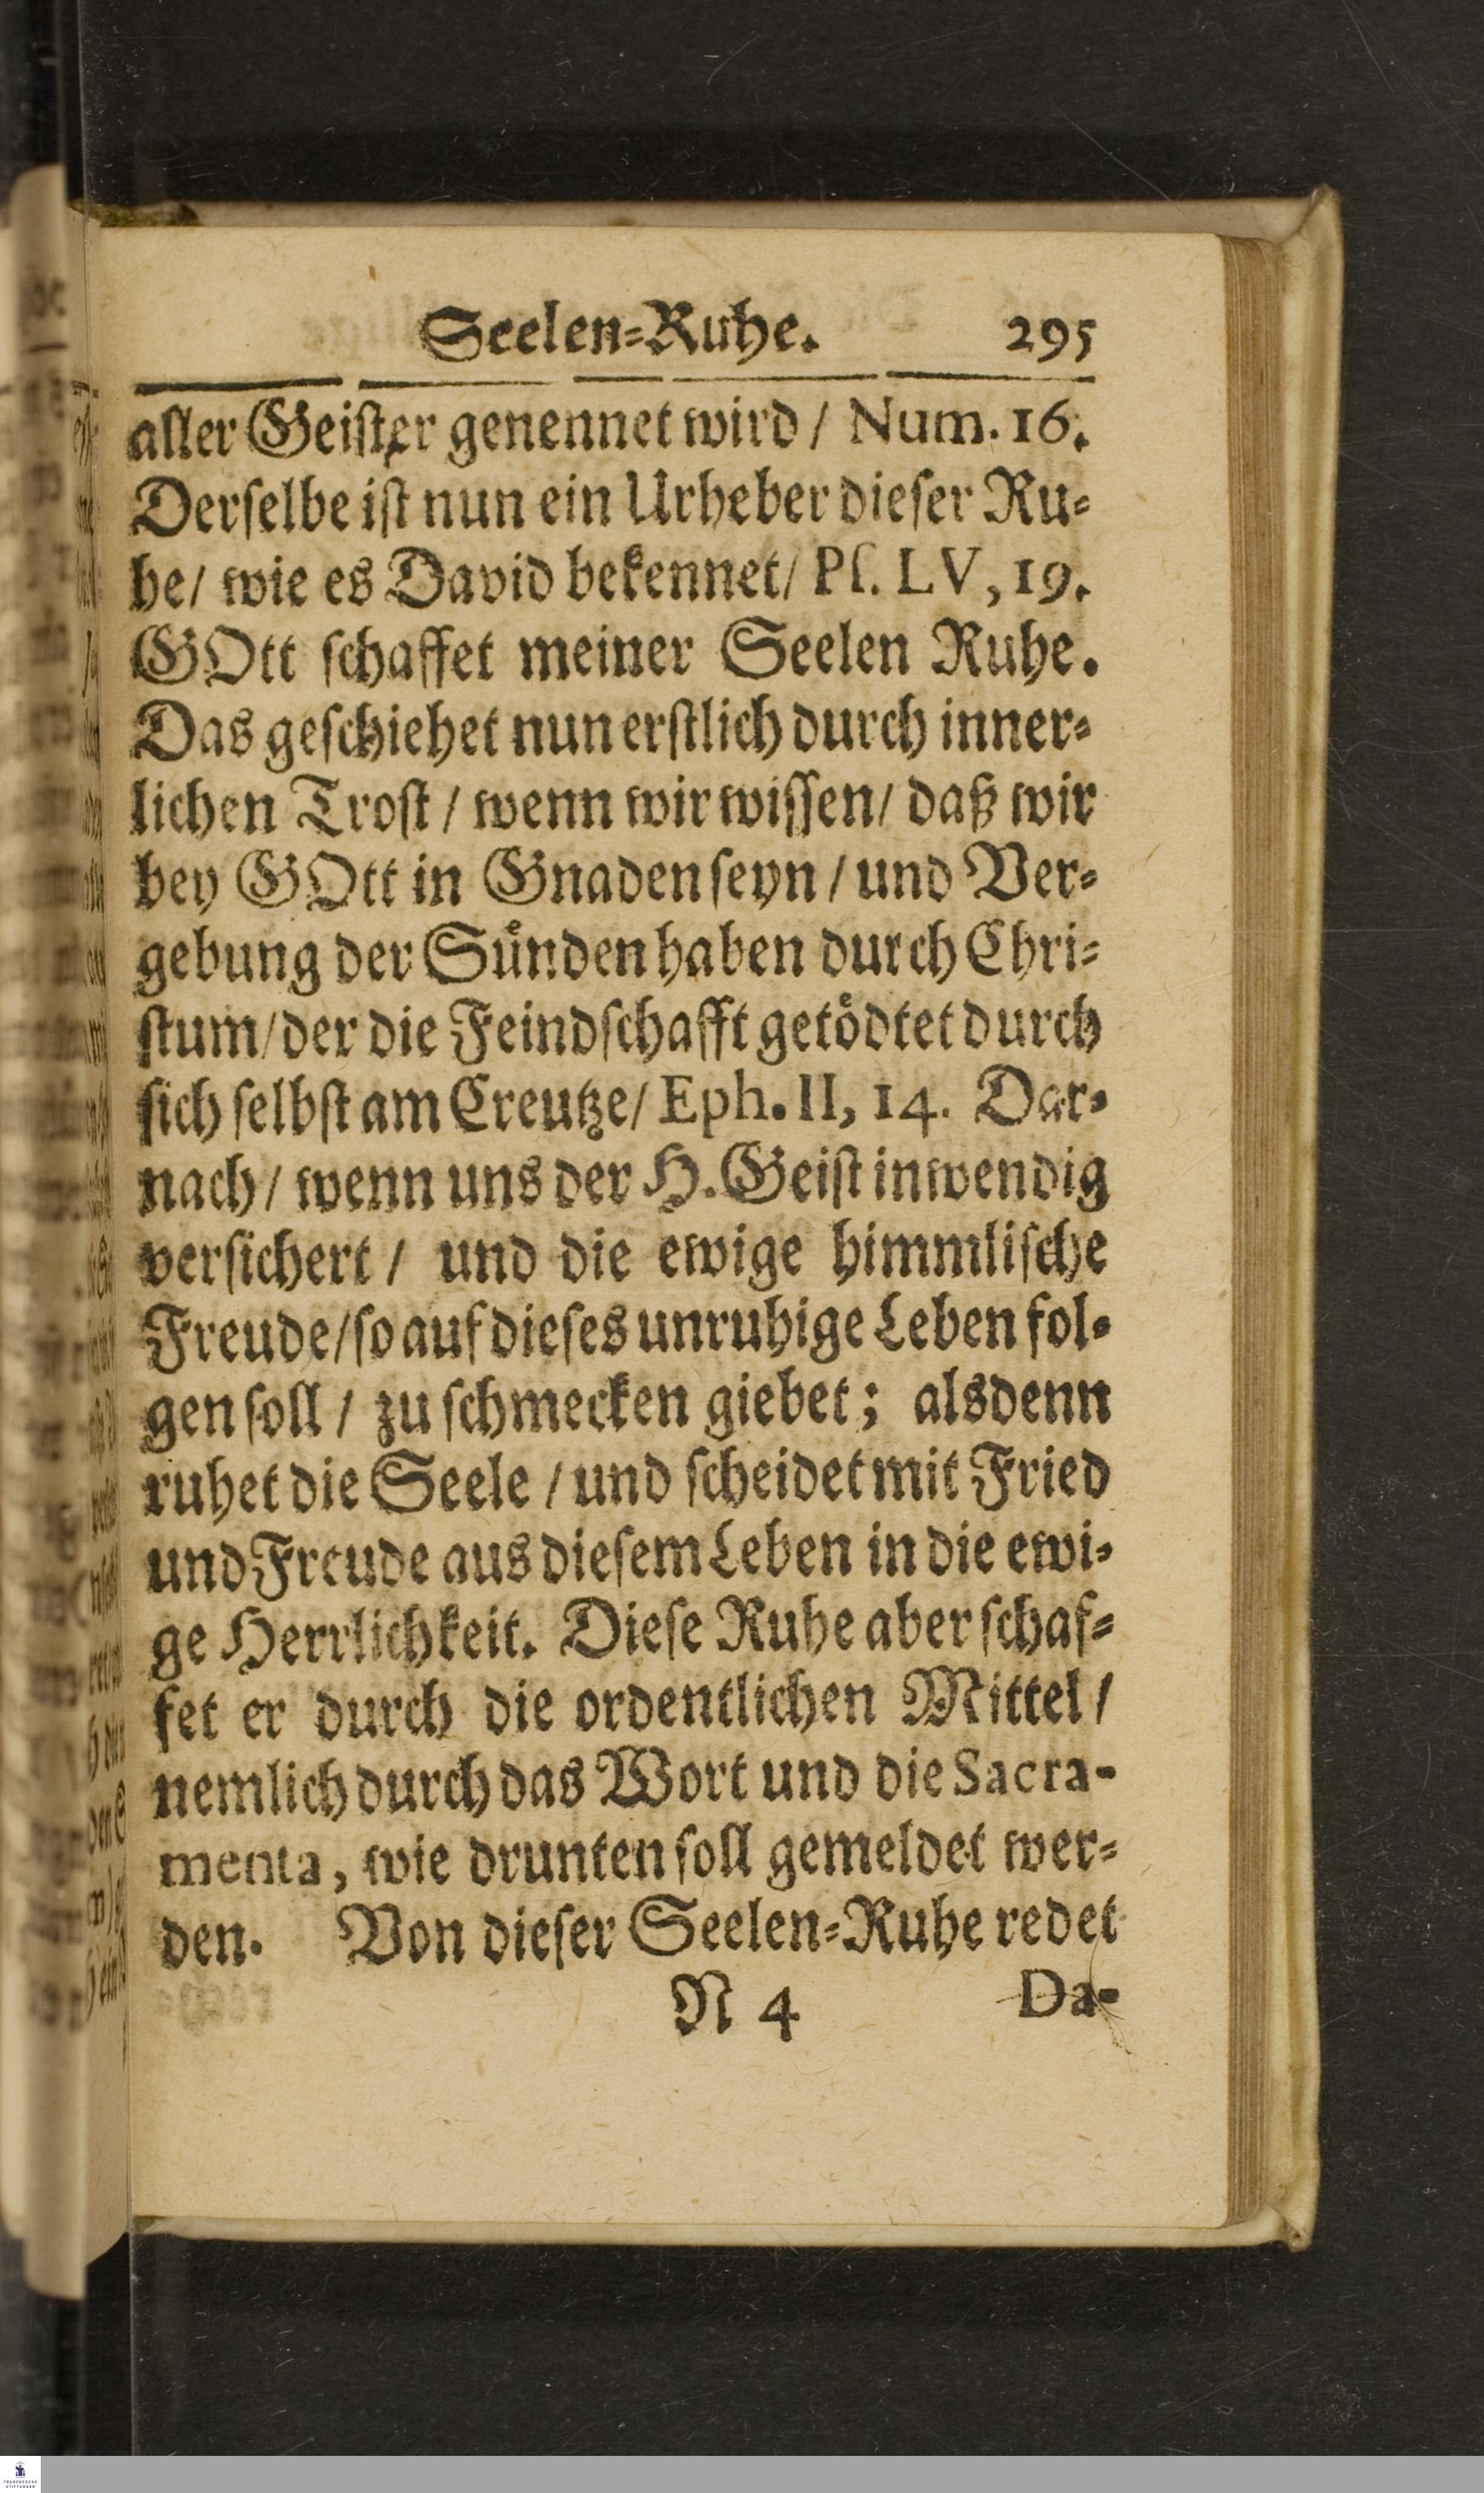 Seelen-Ruhe. 295
aller Geister genennet wird / Num. 16.
Derſelbe iſt nun ein Urheber dieſer Ru-
he/ wie es David bekennet/ Pſ. LV, 19.
GOtt ſchaffet meiner Seelen Ruhe.
Das geſchiehet nun erſtlich durch inner-
lichen Troſt / wenn wir wiſſen/ daß wir
bey GOtt in Gnaden ſeyn / und Ver-
gebung der Sünden haben durch Chri-
ſtum/ der die Feindſchafft getödtet durch
ſich ſelbſt am Creutze/ Eph. II, 14. Dar-
nach / wenn uns der H. Geiſt inwendig
verſichert / und die ewige himmliſche
Freude/ ſo auf dieſes unruhige Leben fol-
gen ſoll / zu ſchmecken giebet; alsdenn
ruhet die Seele / und ſcheidet mit Fried
und Freude aus dieſem Leben in die ewi-
ge Herrlichkeit. Dieſe Ruhe aber ſchaf-
fet er durch die ordentlichen Mittel /
nemlich durch das Wort und die Sacra-
menta, wie drunten ſoll gemeldet wer-
den. Von dieſer Seelen-Ruhe redet
N 4 Da-
FRANCKESCHE
STIFTUNGEN